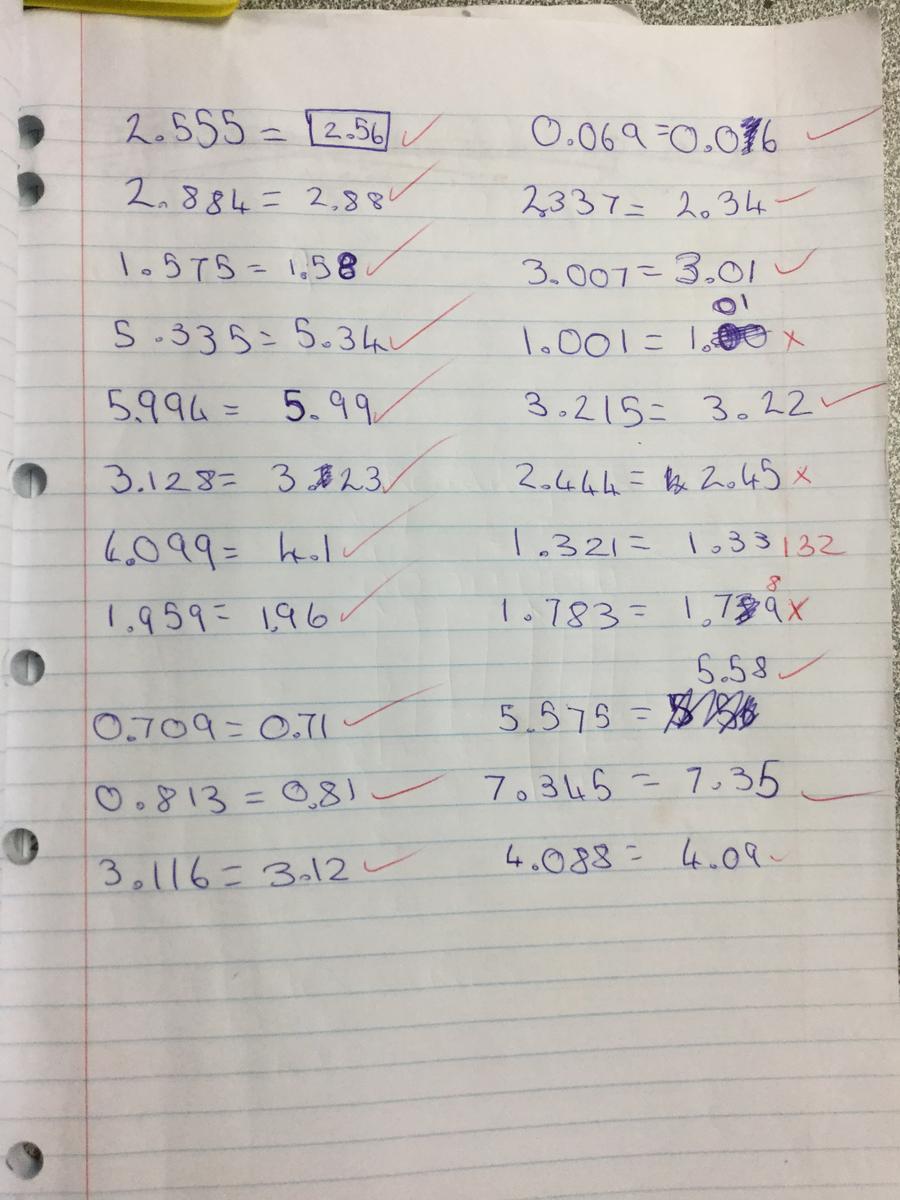 2.555 = 2.56 ✓
2.884 = 2.88 ✓
1.575 = 1.58 ✓
5.335 = 5.34 ✓
5.994 = 5.99 ✓
3.128 = 3.23 ✓
4.099 = 4.1 ✓
1.959 = 1.96 ✓
0.709 = 0.71 ✓
0.813 = 0.81 ✓
3.116 = 3.12 ✓
0.069 = 0.076 ✓
2337 = 2.34 ✓
3.007 = 3.01 ✓
01
1.001 = 1. x
3.215 = 3.22 ✓
2.444 = 2.45 x
1.321 = 1.33 132
8
1.783 = 1.79 x
5.58 ✓
5.575 =
7.345 = 7.35 ✓
4.088 = 4.09 ✓